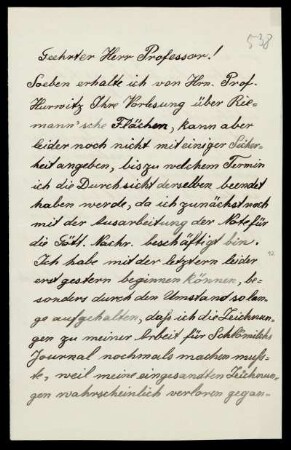 538
Geehrter Herr Professor!
Soeben erhalte ich von Hrn. Prof.
Hurwitz Ihre Vorlesung über Rie-
mann'sche Flächen, kann aber
leider noch nicht mit einiger Sicher-
heit angeben, bis zu welchem Termin
ich die Durchsicht derselben beendet
haben werde, da ich zunächst noch
mit der Ausarbeitung der Note für
die Gött. Nachr. beschäftigt bin.
Ich habe mit der letztern leider
erst gestern beginnen können, be-
sonders durch den Umstand so lan-
ge aufgehalten, daß ich die Zeichnun-
gen zu meiner Arbeit für Schlömilchs
Journal nochmals machen muß-
te, weil meine eingesandten Zeichnun-
gen wahrscheinlich verloren gegan-